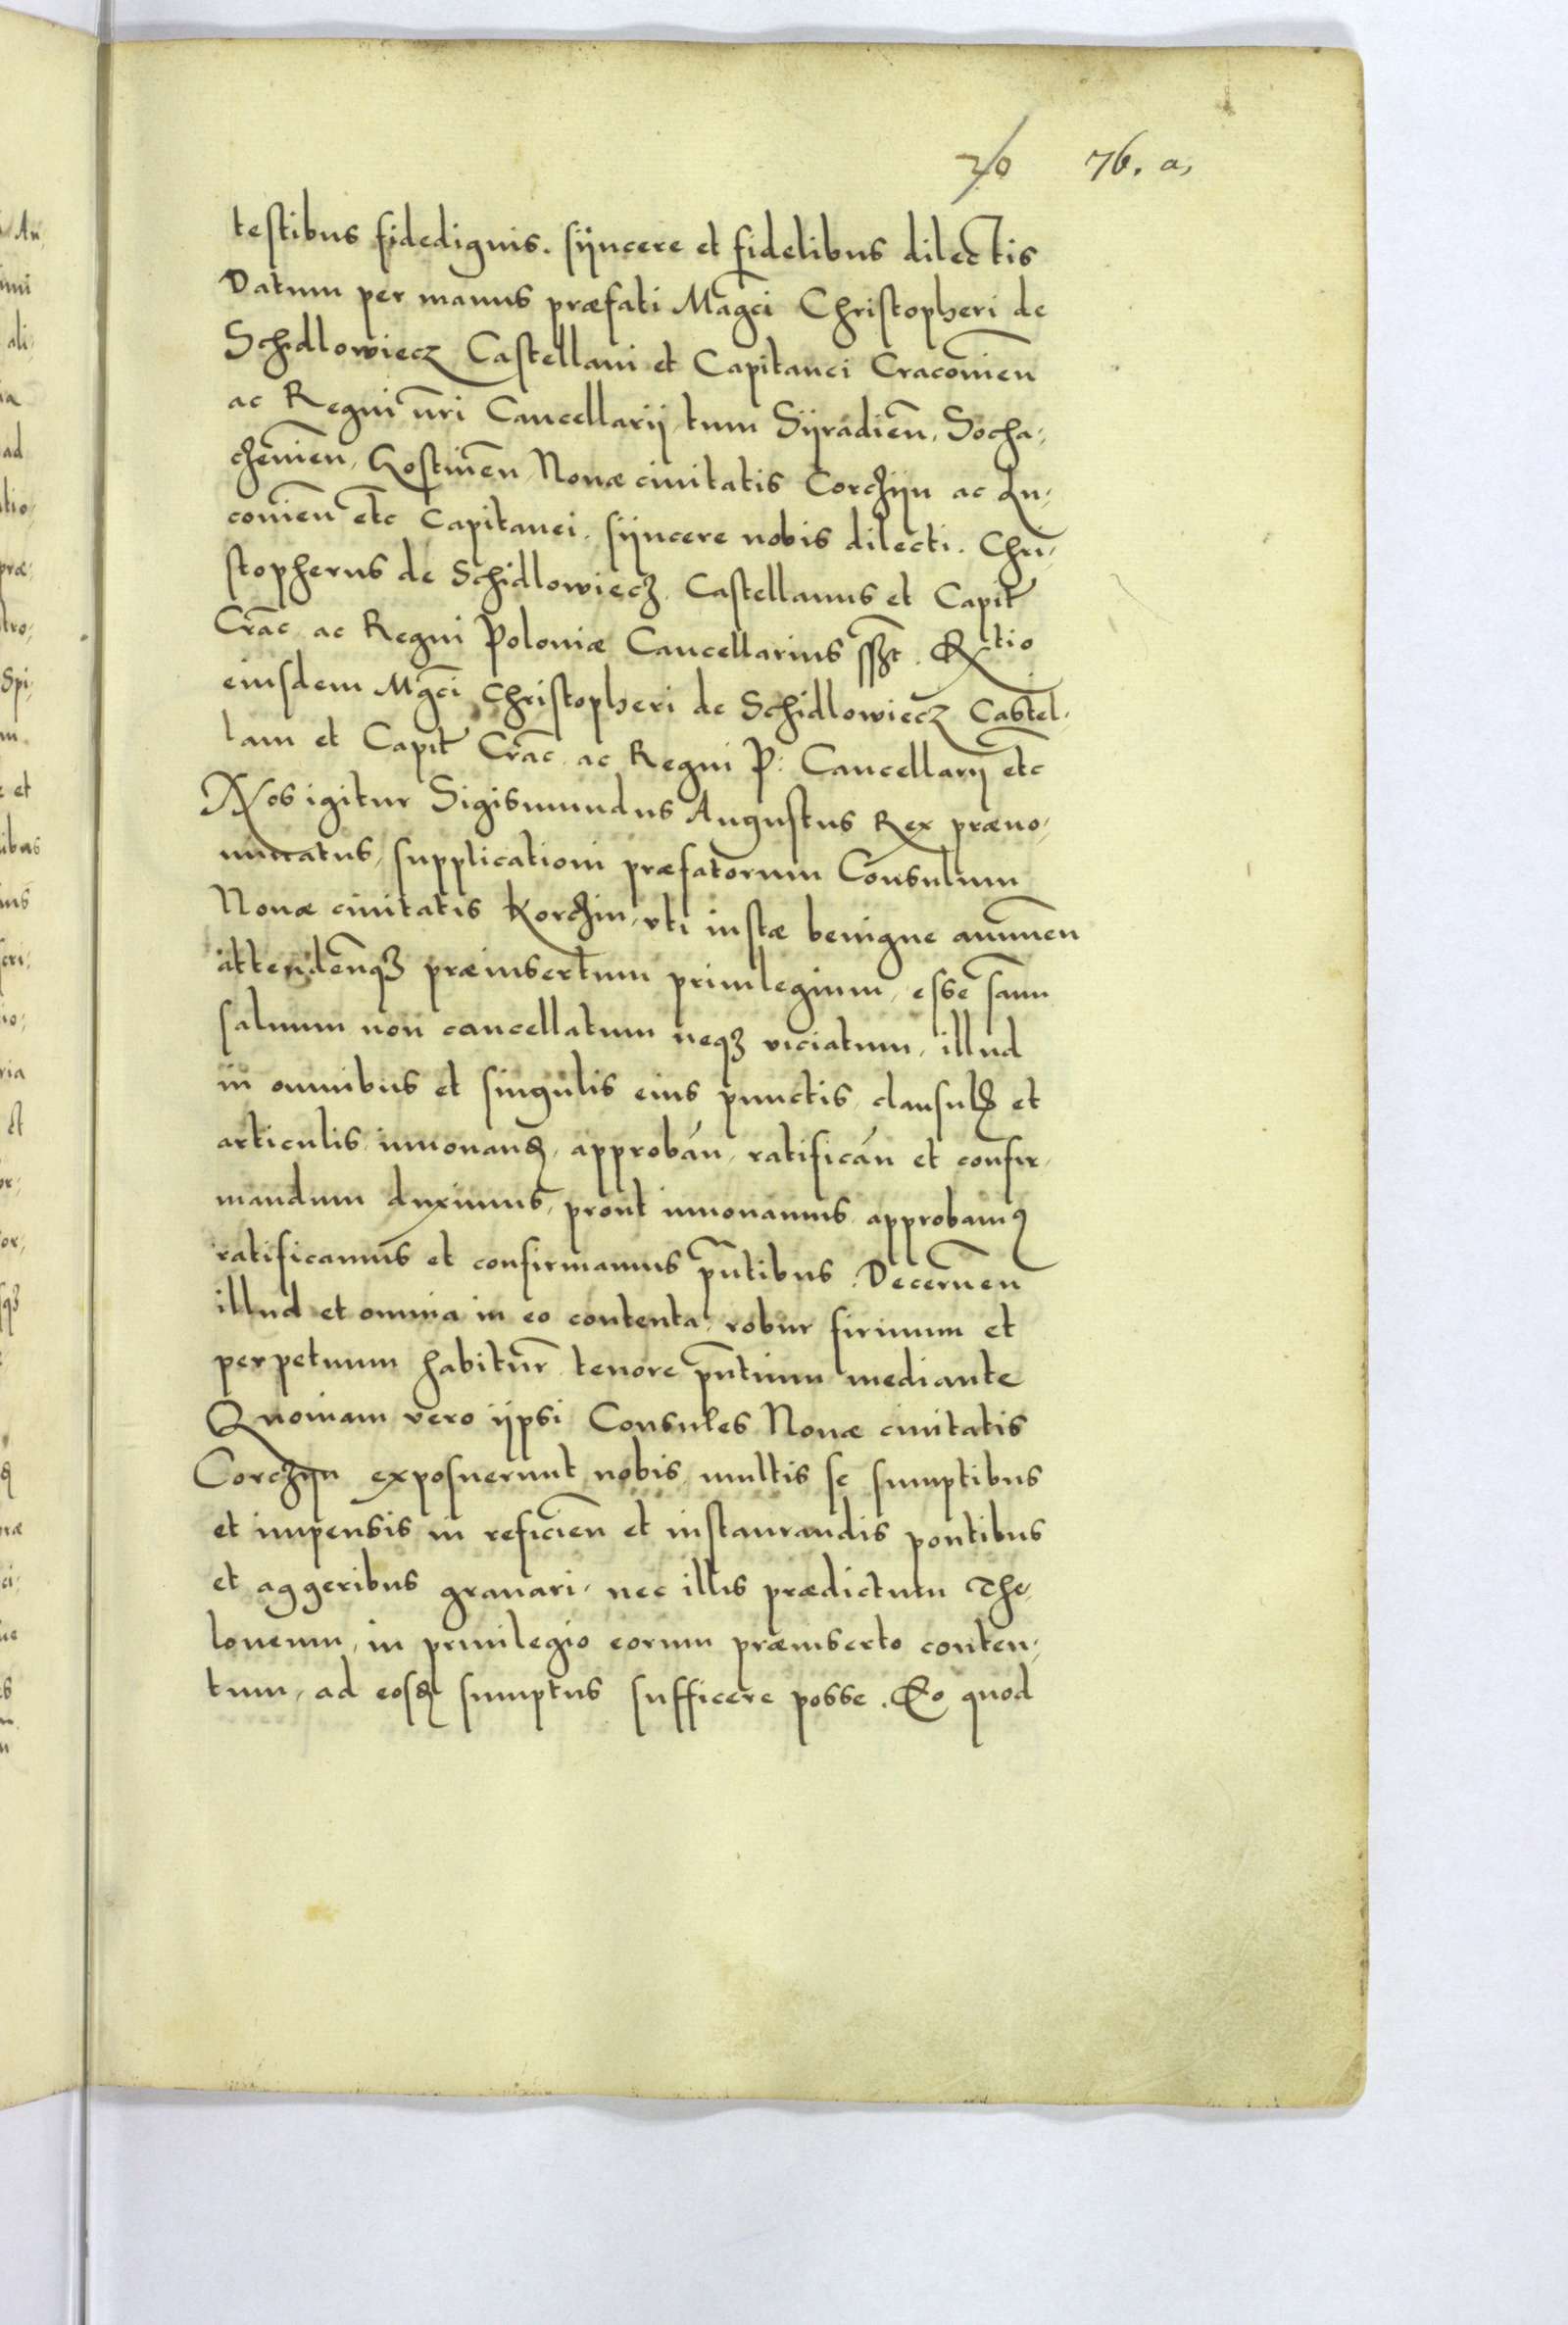 20 76. a,
testibus fidedignis. sÿncere et fidelibus dilectis
Datum per manus præfati Magci Christopheri de
Schidlowiecz Castellani et Capitanei Cracouien̄
ac Regni nr̄i Cancellarij, tum Sÿradien̄, Socha-
czeuien̄, Gostinen̄, Nouæ ciuitatis Corczÿn ac Lu-
couien̄ etc̄ Capitanei, sÿncere nobis dilecti. Chri-
stopherus de Schidlowiecz, Castellanus et Capit̄
Crac̄ ac Regni Poloniæ Cancellarius sszt. Rtio
eiusdem Mgc̄i Christopheri de Schidlowiecz Castel-
lani et Capit̄ Crac̄ ac Regni P: Cancellarij etc̄
Nos igitur Sigismundus Augustus Rex præno-
minatus, supplicationi præfatorum Consulum
Nouæ ciuitatis Korczin, vti iustæ benigne annuen̄
attenden̄qʒ præinsertum priuilegium, esse sanū
saluum non cancellatum neqʒ viciatum, illud
in omnibus et singulis eius punctis, clausulis et
articulis, innouand, approbán, ratificán et confir-
mandum duximus, prout innouamus approbamꝰ
ratificamus et confirmamus pn̄tibus. Decernen̄
illud et omnia in eo contenta, robur firmum et
perpetuum habitur̄ tenore pn̄tium mediante
Quoniam vero ÿpsi Consules Nouæ ciuitatis
Corczÿn exposuerunt nobis, multis se sumptibus
et impensis in reficien̄ et instaurandis pontibus
et aggeribus grauari, nec illis prædictum The-
loneum, in priuilegio eorum præinserto conten-
tum, ad eosd sumptus sufficere posse. Eo quod